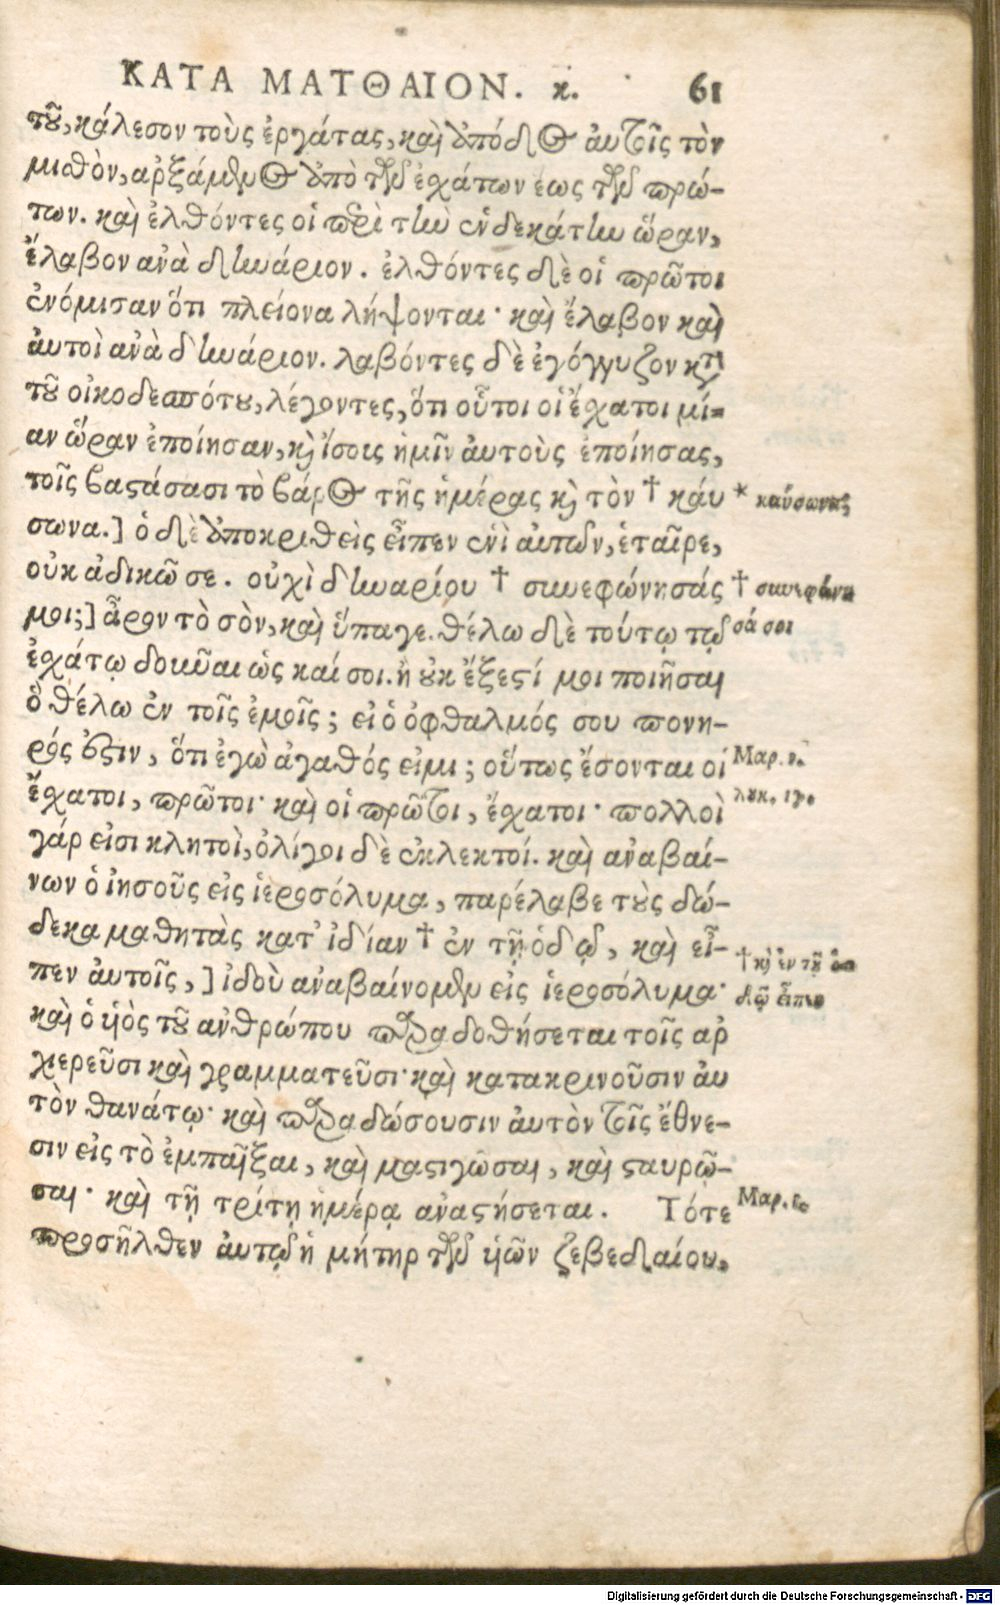 ΚΑΤΑ ΜΑΤΘΑΙΟΝ. κ. 61
τοῦ, κάλεσον τοὺς ἐργάτας, καὶ ἀπόδος αὐτοῖς τὸν
μισθὸν, ἀρξάμενος ἀπὸ τῶν ἐσχάτων ἕως τῶν πρώ-
των. καὶ ἐλθόντες οἱ περὶ τὴν ἐνδεκάτην ὥραν,
ἔλαβον ἀνὰ δηνάριον. ἐλθόντες δὲ οἱ πρῶτοι
ἐνόμισαν ὅτι πλείονα λήψονται· καὶ ἔλαβον καὶ
ἀυτοὶ ἀνὰ δηνάριον. λαβόντες δὲ ἐγόγγυζον κατὰ
τοῦ οἰκοδεσπότου, λέγοντες, ὅτι οὗτοι οἱ ἔσχατοι μί-
αν ὥραν ἐποίησαν, καὶ ἴσοις ἡμῖν ἀυτοὺς ἐποίησας,
τοῖς βαστάσασι τὸ βάρος τῆς ἡμέρας καὶ τὸν † κάυ
σωνα.] ὁ δὲ ἀποκριθεὶς εἶπεν ἑνὶ ἀυτῶν, ἑταῖρε,
οὐκ ἀδικῶ σε. οὐχὶ δηναρίου † συνεφώνησάς
μοι;] ἆρον τὸ σὸν, καὶ ὕπαγε. θέλω δὲ τούτῳ τῷ
ἐσχάτῳ δοῦναι ὡς καί σοι. ἢ οὐκ ἔξεστί μοι ποιῆσαι
ὃ θέλω ἐν τοῖς ἐμοῖς; εἰ ὁ ὀφθαλμός σου πονη-
ρός ἐστιν, ὅτι ἐγὼ ἀγαθός εἰμι; οὕτως ἔσονται οἱ
ἔσχατοι, πρῶτοι· καὶ οἱ πρῶτοι, ἔσχατοι· πολλοὶ
γάρ εἰσι κλητοὶ, ὀλίγοι δὲ ἐκλεκτοί. καὶ ἀναβαί-
νων ὁ ἰησοῦς εἰς ἱεροσόλυμα, παρέλαβε τοὺς δώ-
δεκα μαθητὰς κατ' ἰδίαν † ἐν τῇ ὁδῷ, καὶ εἶ-
πεν ἀυτοῖς,] ἰδοὺ ἀναβαίνομεν εἰς ἱεροσόλυμα·
καὶ ὁ υἱὸς τοῦ ἀνθρώπου παραδοθήσεται τοῖς ἀρ
χιερεῦσι καὶ γραμματεῦσι· καὶ κατακρινοῦσιν ἀυ
τὸν θανάτῳ· καὶ παραδώσουσιν ἀυτὸν τοῖς ἔθνε-
σιν εἰς τὸ ἐμπαῖξαι, καὶ μαστιγῶσαι, καὶ σταυρῶ-
σαι· καὶ τῇ τρίτῃ ἡμέρᾳ ἀναστήσεται. Τότε
προσῆλθεν ἀυτῷ ἡ μήτηρ τῶν υἱῶν ζεβεδαίου,
* καύσωνας
† συνεφώνη
σά σοι
Μαρ. ι.
λουκ. ιγ.
† καὶ ἐν τῇ ὁ
δῷ εἶπεν
Μαρ. ι.
Digitalisierung gefördert durch die Deutsche Forschungsgemeinschaft - DFG